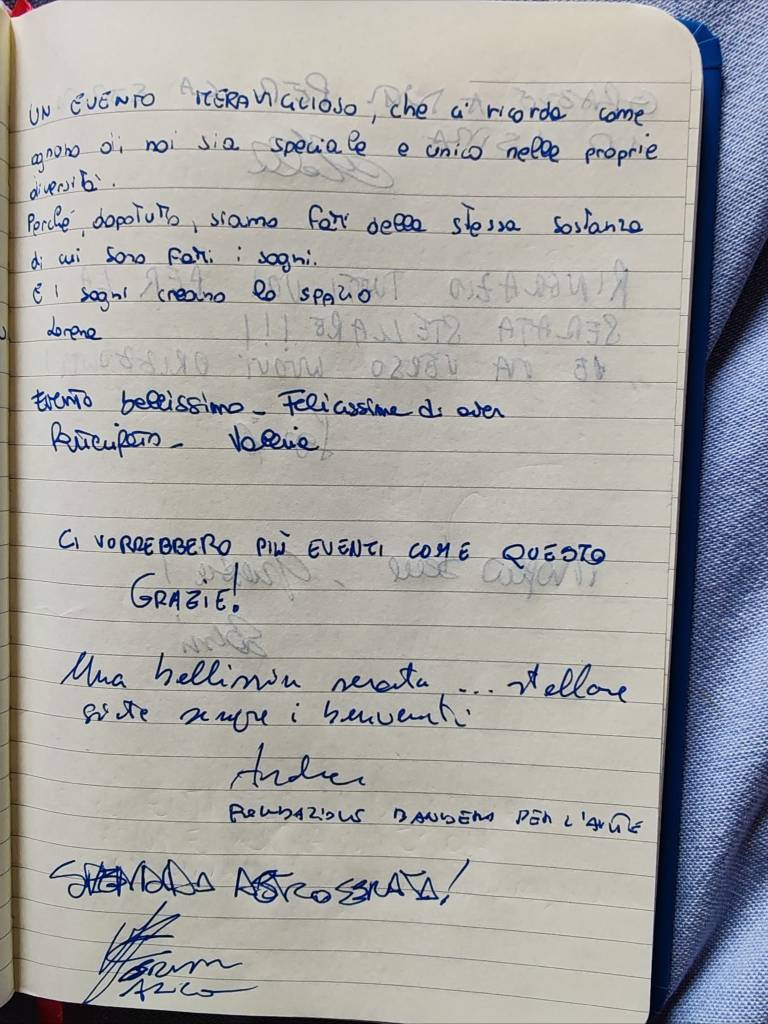 UN EVENTO MERAVIGLIOSO, che ci ricorda come
ognuno di noi sia speciale e unico nelle proprie
diversità.
Perché, dopotutto, siamo fatti della stessa sostanza
di cui sono fatti i sogni.
E i sogni creano lo spazio
Lorena
Evento bellissimo - Felicissima di aver
Partecipato - Valeria
CI VORREBBERO PIÙ EVENTI COME QUESTO
GRAZIE!
Una bellissima serata ... stellare
siete sempre i benvenuti
Andrea
FONDAZIONE BANDERA PER L'ARTE
SPLENDIDA ASTROSERATA!